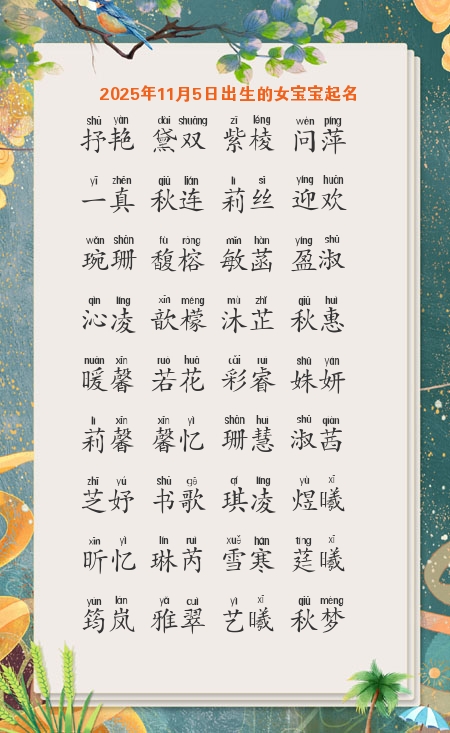 2025年11月5日出生的女宝宝起名
shū yàn dài shuāng zǐ léng wèn píng
抒艳 黛双 紫棱 问萍
yī zhēn qiū lián lì sī yíng huān
一真 秋连 莉丝 迎欢
wǎn shān fù róng mǐn hàn yíng shū
琬珊 馥榕 敏菡 盈淑
qìn líng xīn méng mù zhǐ qiū huì
沁凌 歆檬 沐芷 秋惠
nuǎn xīn ruò huā cǎi ruì shū yán
暖馨 若花 彩睿 姝妍
lì xīn xīn yì shān huì shū qiàn
莉馨 馨忆 珊慧 淑茜
zhī yú shū gē qí líng yù xī
芝妤 书歌 琪凌 煜曦
xīn yì lín ruì xuě hán tíng xī
昕忆 琳芮 雪寒 莛曦
yún lán yǎ cuì yì xī qiū mèng
筠岚 雅翠 艺曦 秋梦